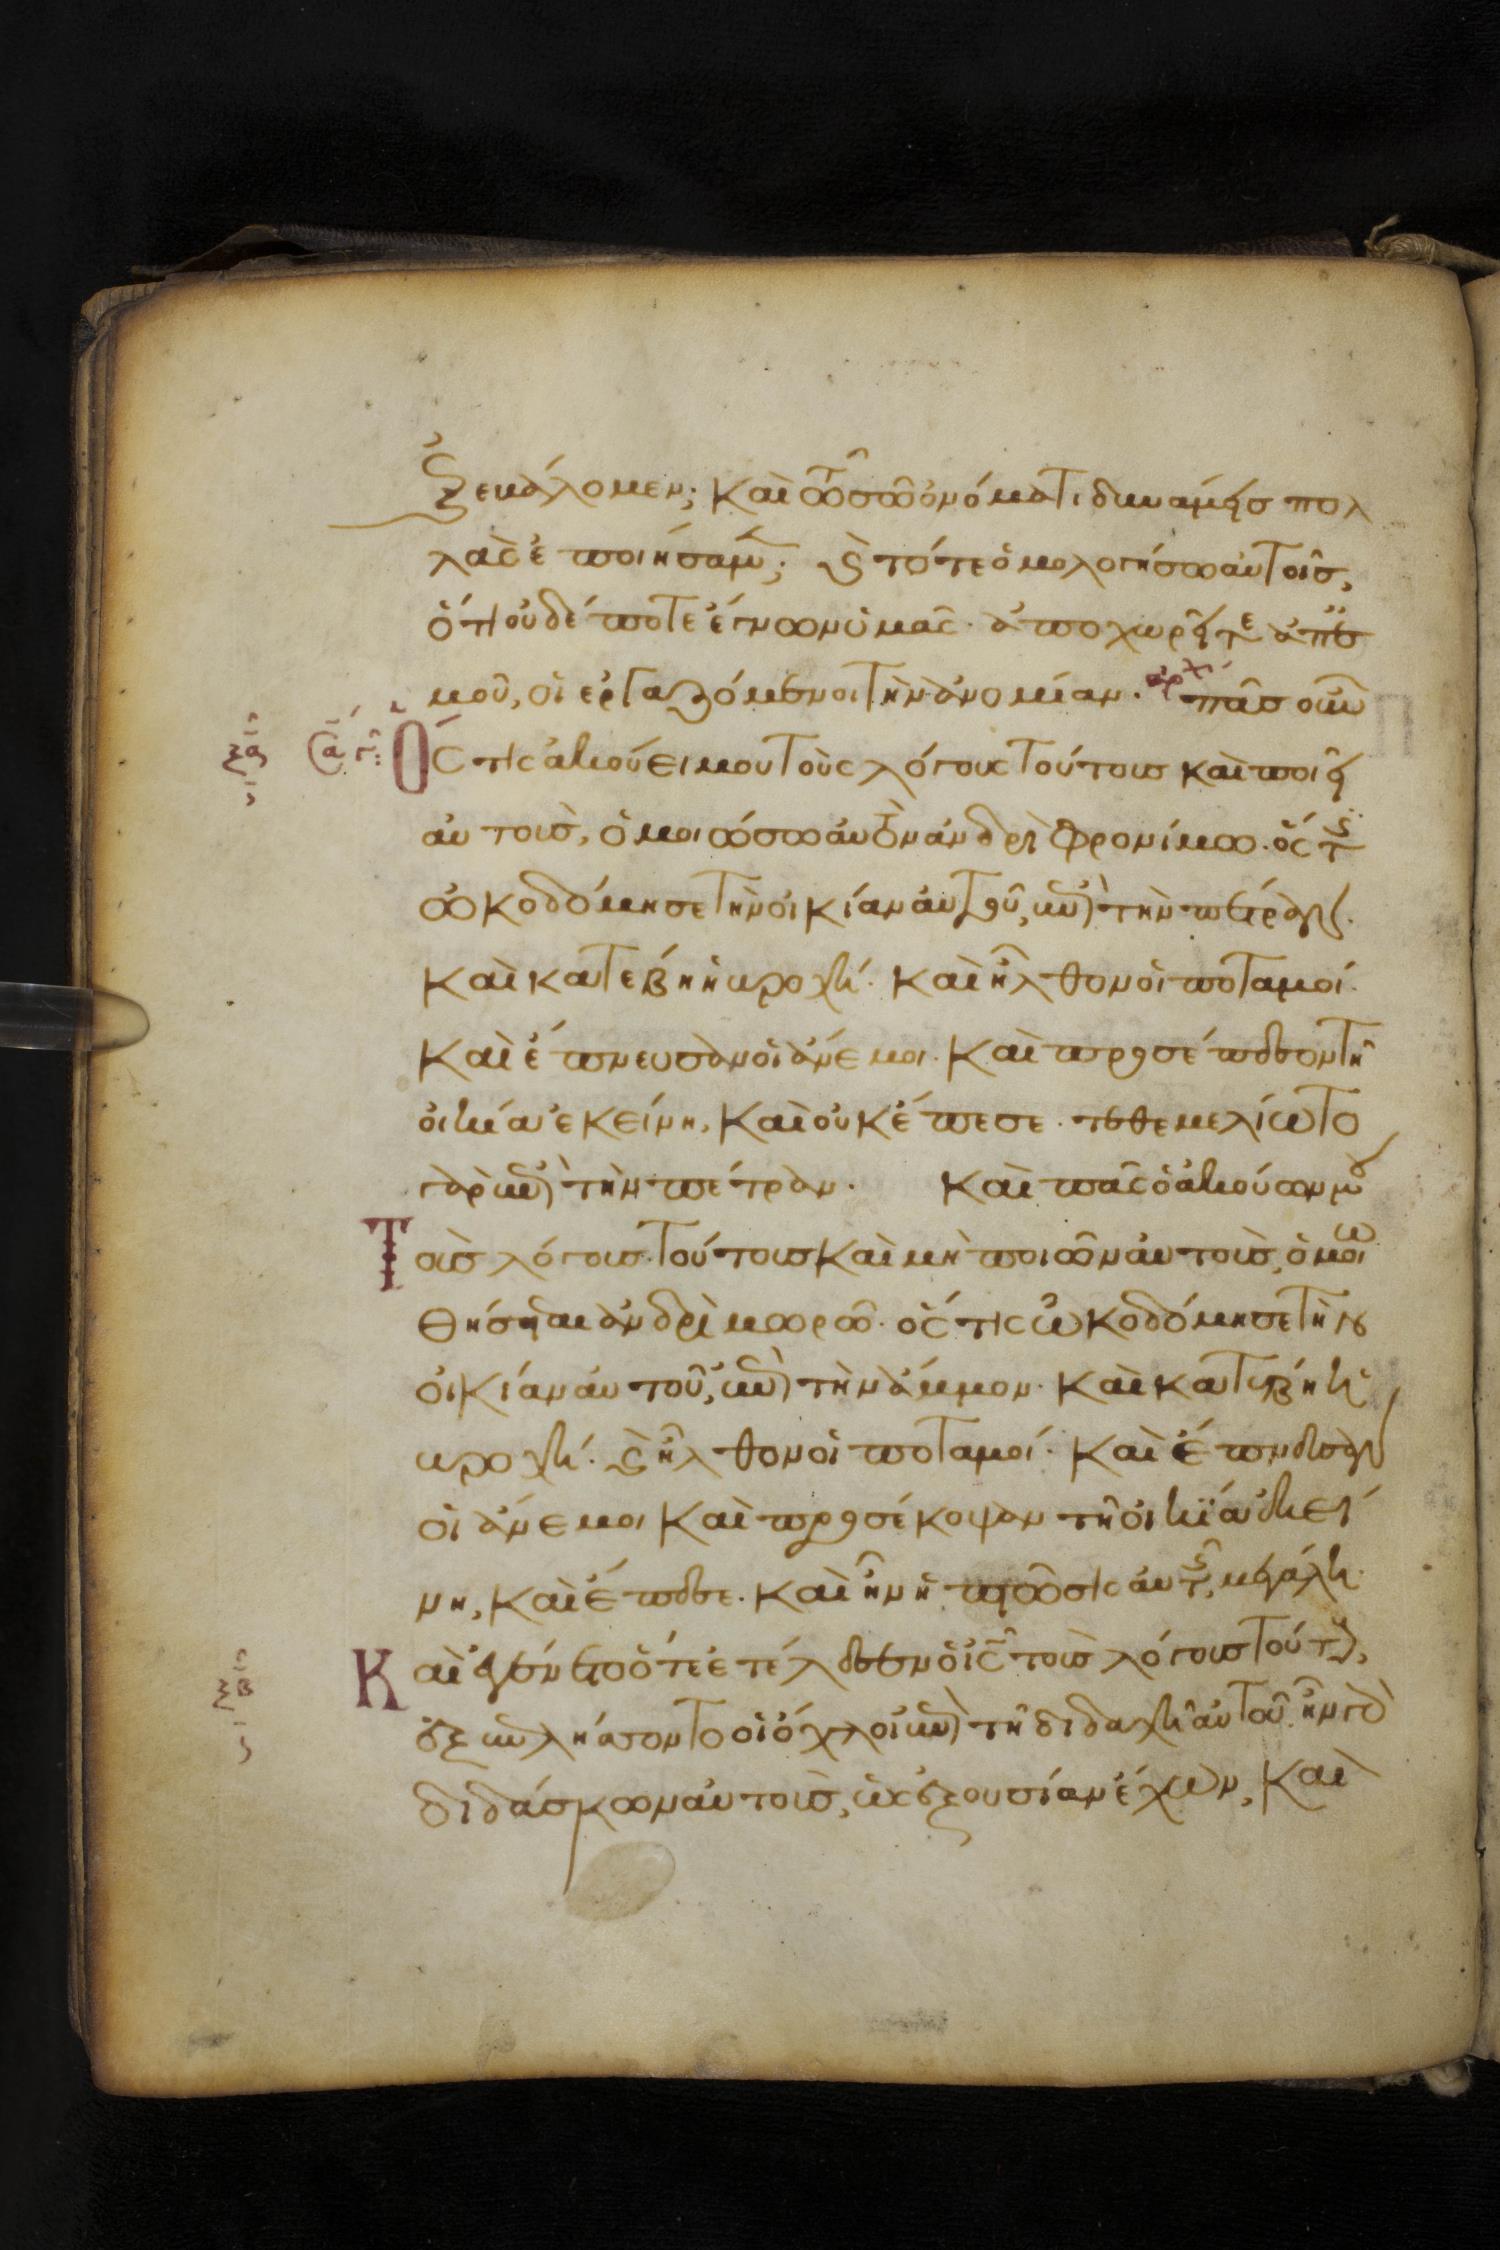 ἐξεβάλομεν; καὶ τῶ σῶ ὀνόματι δυνάμεις πολ
λὰς ἐποιήσαμεν; καὶ τότε ὁμολογήσω αὐτοῖς,
ὅτι οὐδέποτε ἔγνων ὑμᾶς. ἀποχωρεῖτε ἀπ᾽
μοῦ, οἱ ἐργαζόμενοι τὴν ἀνομίαν. ἀρχ πᾶς οὖν
ξα α Ὅς τις ἀκούει μου τοὺς λόγους τούτους καὶ ποιεῖ
αὐτοὺς, ὁμοιώσω αὐτὸν ἀνδρὶ φρονίμω. ὅς τις
ὠκοδόμησε τὴν οἰκίαν αὐτοῦ, ἐπὶ τὴν πέτραν.
καὶ κατέβη ἡ βροχή. καὶ ἦλθον οἱ ποταμοί.
καὶ ἔπνευσαν οἱ ἄνεμοι. καὶ προσέπεσον τῆ
οἰκία ἐκείνη, καὶ οὐκ ἔπεσε. τεθεμελίωτο
γὰρ ἐπὶ τὴν πέτραν. καὶ πᾶς ὁ ἀκούων μου
Τοὺς λόγους τούτους καὶ μὴ ποιῶν αὐτοὺς, ὁμοιω
θήσεται ἀνδρὶ μωρῶ. ὅς τις ὠκοδόμησε τὴν
οἰκίαν αὐτοῦ, ἐπὶ τὴν ἄμμον. καὶ κατέβη ἡ
βροχή. καὶ ἦλθον οἱ ποταμοί. καὶ ἔπνευσαν
οἱ ἄνεμοι καὶ προσέκοψαν τῆ οἰκία ἐκεί
νη, καὶ ἔπεσε. καὶ ἦν ἡ πτῶσις αὐτῆς, μεγάλη.
ξβ Καὶ ἐγένετο ὅτε ἐτέλεσεν ὁ ις τοὺς λόγους τούτους,
ἐξεπλήσσοντο οἱ ὄχλοι ἐπὶ τῆ διδαχῆ αὐτοῦ. ἦν γὰρ
διδάσκων αὐτοὺς, ὡς ἐξουσίαν ἔχων, καὶ